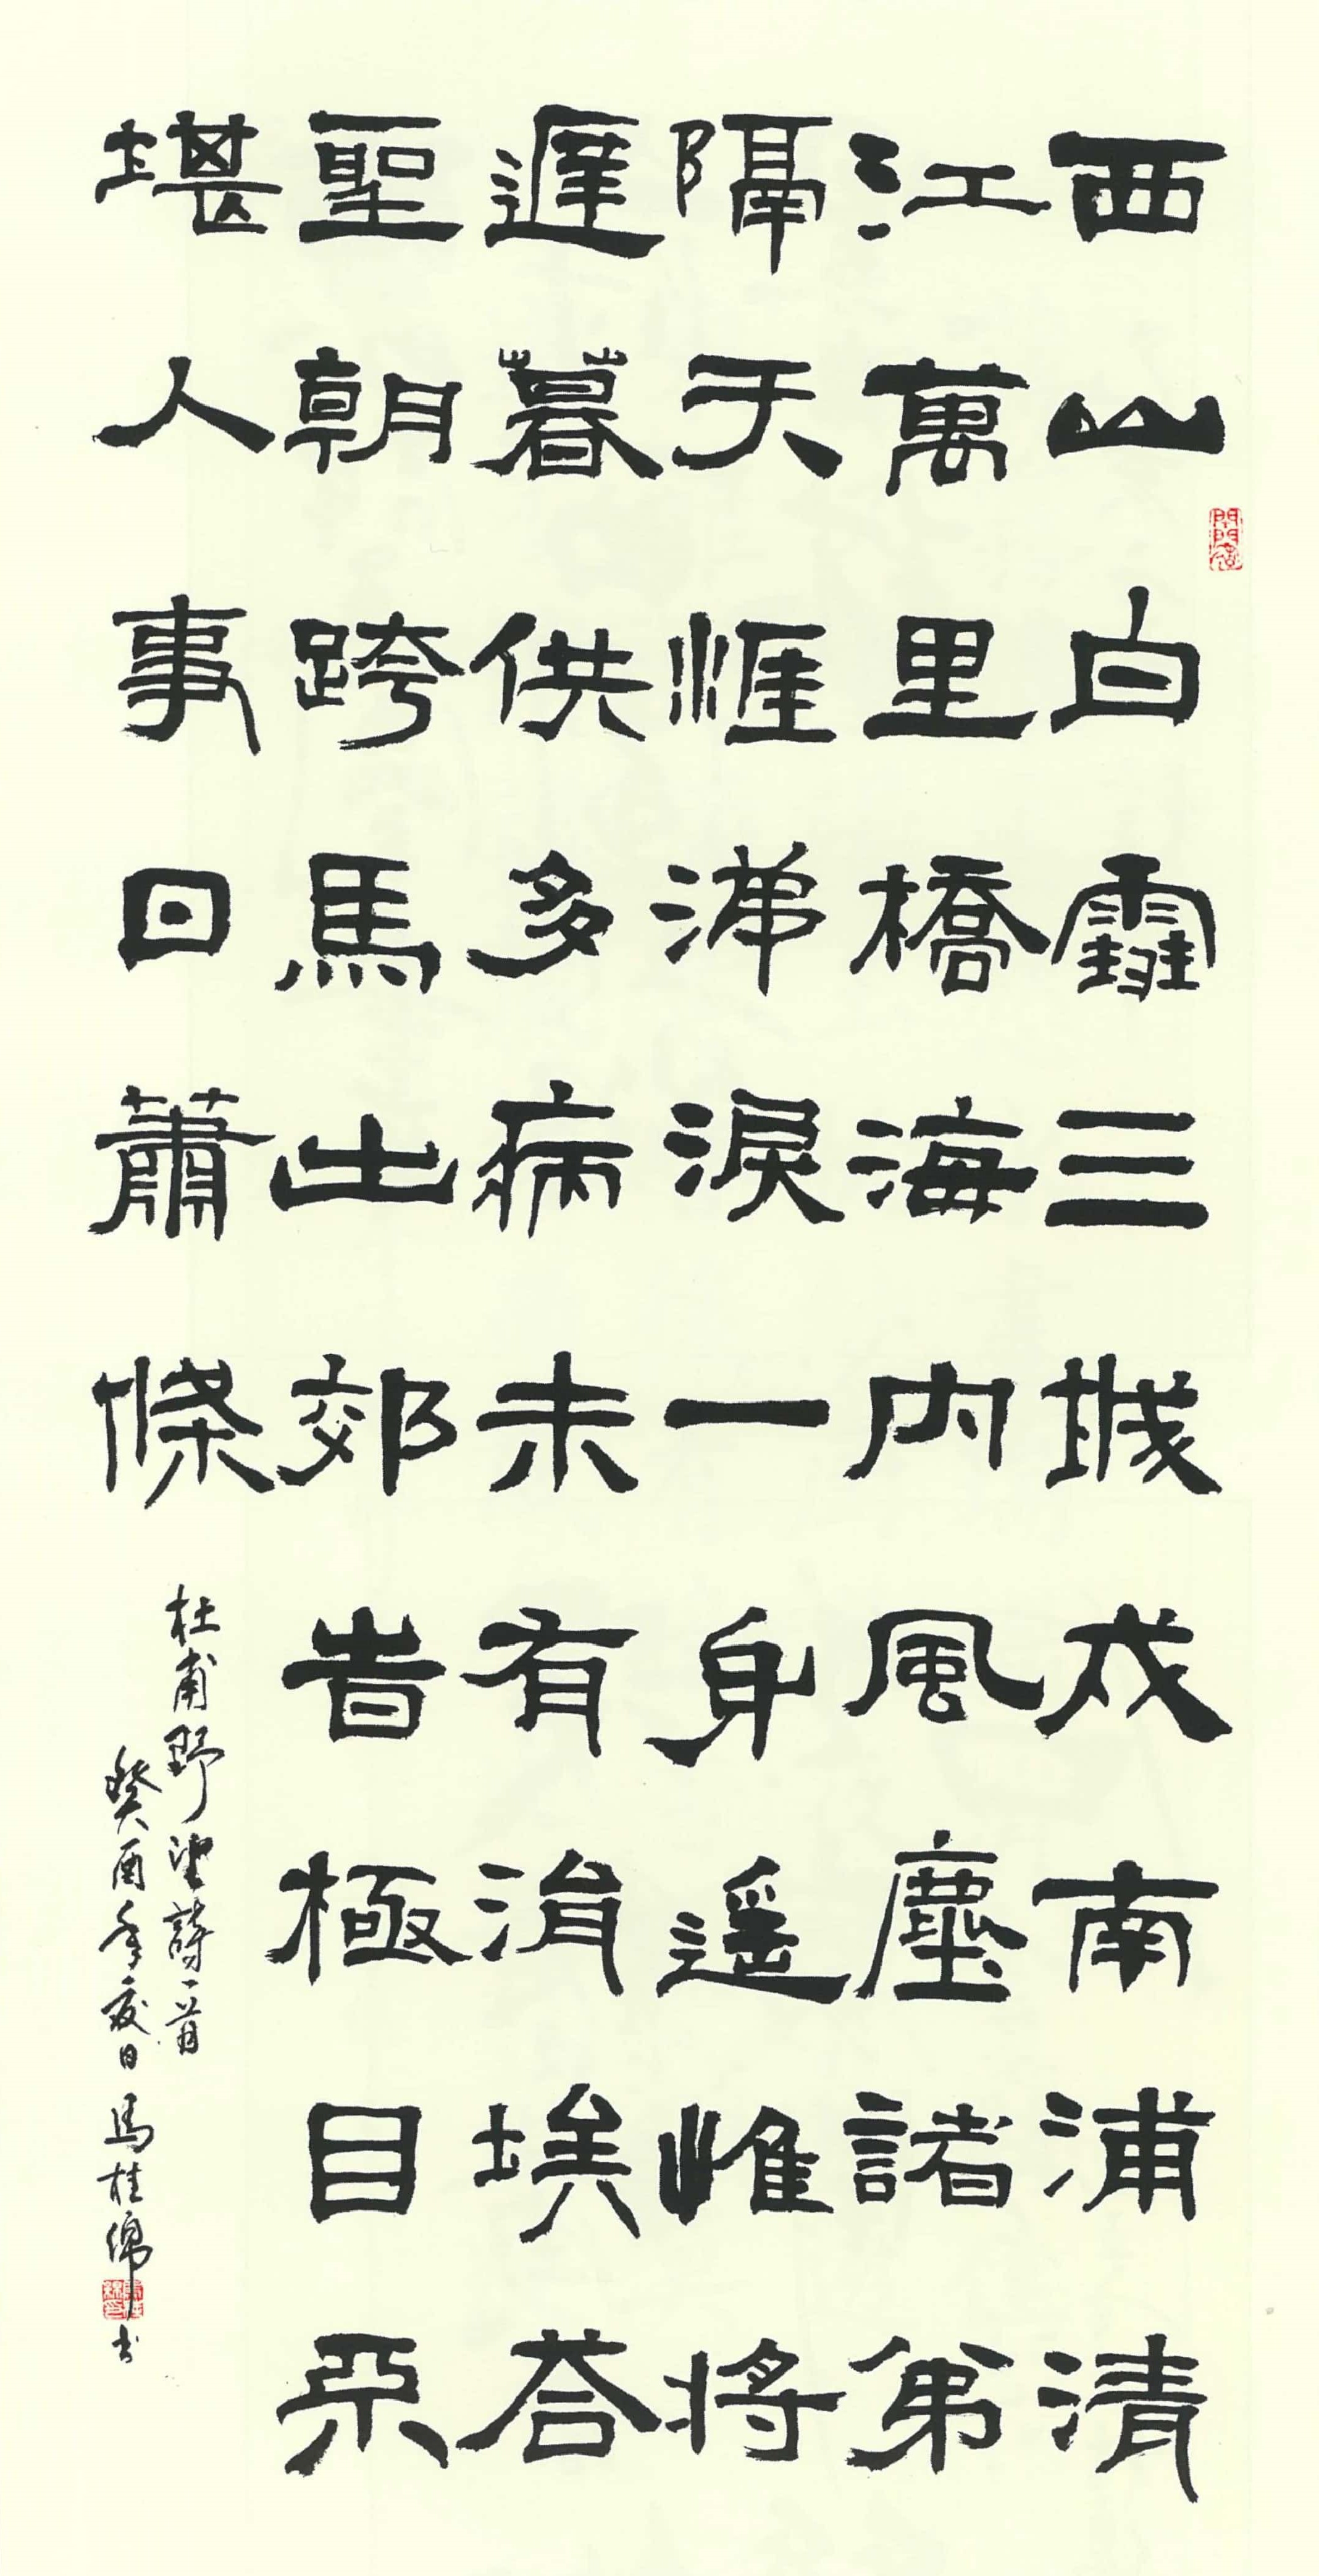 西山白雪三城戍南浦清
江萬里橋海內風塵諸弟
隔天涯涕淚一身遙惟將
遲暮供多病未有涓埃荅
聖朝跨馬出郊旹極目不
堪人事日蕭條
杜甫野望詩一首
癸酉年夏日馬桂綿书